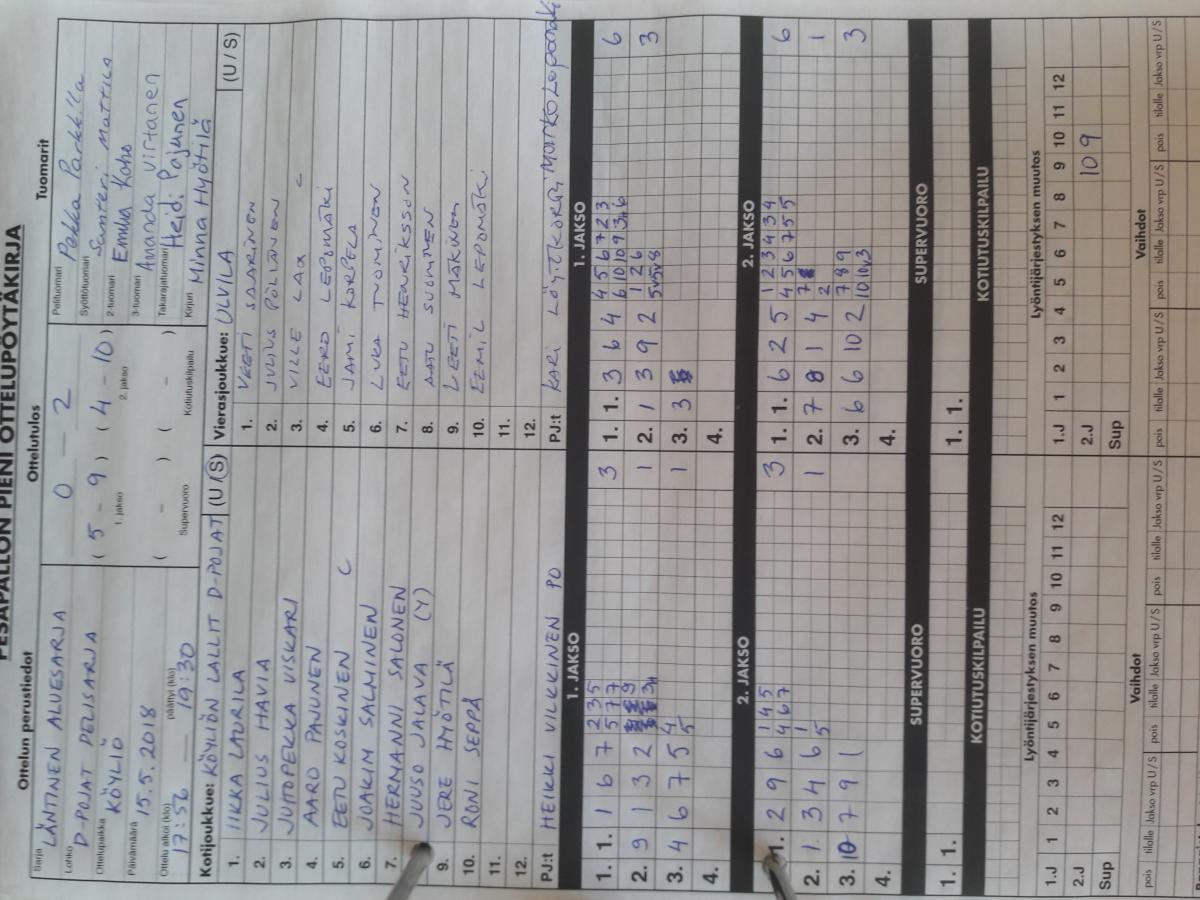 PESÄPALLON PIENI OTTELUPÖYTÄKIRJA
Ottelun perustiedot
Sarja
LÄNTINEN ALUESARJA
Lohko
D-POJAT PELISARJA
Ottelupaikka
KÖYLIÖ
Päivämäärä
15.5.2018
Ottelu alkoi (klo) päättyi (klo)
17:56 19:30
Ottelutulos
0 – 2
( 5 – 9 ) ( 4 – 10 )
1. jakso 2. jakso
( – ) ( – )
Supervuoro Kotiutuskilpailu
Tuomarit
Pelituomari
Pekka Parkkila
Syöttötuomari
Santeri Mattila
2-tuomari
Emma Koho
3-tuomari
Amanda Virtanen
Takarajatuomari
Heidi Pajunen
Kirjuri
Minna Hyötilä
Kotijoukkue: KÖYLIÖN LALLIT D-POJAT (U / S)
1. IIKKA LAURILA
2. JULIUS HAVIA
3. JUHOPEKKA VISKARI
4. AARO PAJUNEN
5. EETU KOSKINEN C
6. JOAKIM SALMINEN
7. HERMANNI SALONEN
8. JUUSO JALAVA (Y)
9. JERE HYÖTILÄ
10. RONI SEPPÄ
11.
12.
PJ:t HEIKKI VILKKINEN PO
Vierasjoukkue: ULVILA (U / S)
1. VEETI SAARINEN
2. JULIUS PÖLÖNEN
3. VILLE LAA C
4. EERO LEPOMÄKI
5. JAMI KORPELA
6. LUKA TUOMINEN
7. EETU HENRIKSSON
8. AATU SUOMINEN
9. LEEVI MÄKINEN
10. EEMIL LEPOMÄKI
11.
12.
PJ:t KARI LÖYTÖKORPI
1. JAKSO
1. 1. 1 6 7 2 3 5 3
5 7 7
2. 9 1 3 2 1
3. 4 6 7 5 4 1
5
4.
1. JAKSO
1. 1. 3 6 4 4 5 6 7 2 3 6
2. 1 3 9 2 1 2 6 3
3. 3
4.
2. JAKSO
1. 1. 2 9 6 1 4 5 3
4 6 7
2. 1 3 4 6 1 1
5
3. 10 7 9 1
4.
2. JAKSO
1. 1. 6 2 5 1 2 3 4 3 4 6
4 5 6 7 5 5
2. 7 8 1 4 1
3. 6 6 10 2 7 8 9 3
10 10 3
4.
SUPERVUORO
1. 1.
SUPERVUORO
1. 1.
KOTIUTUSKILPAILU
KOTIUTUSKILPAILU
Lyöntijärjestyksen muutos
1.J 1 2 3 4 5 6 7 8 9 10 11 12
2.J
Sup
Lyöntijärjestyksen muutos
1.J 1 2 3 4 5 6 7 8 9 10 11 12
2.J 10 9
Sup
Vaihdot
pois tilalle Jakso vrp U / S pois tilalle Jakso vrp U / S pois tilalle Jakso vrp U / S
Vaihdot
pois tilalle Jakso vrp U / S pois tilalle Jakso vrp U / S pois tilalle Jakso vrp U / S